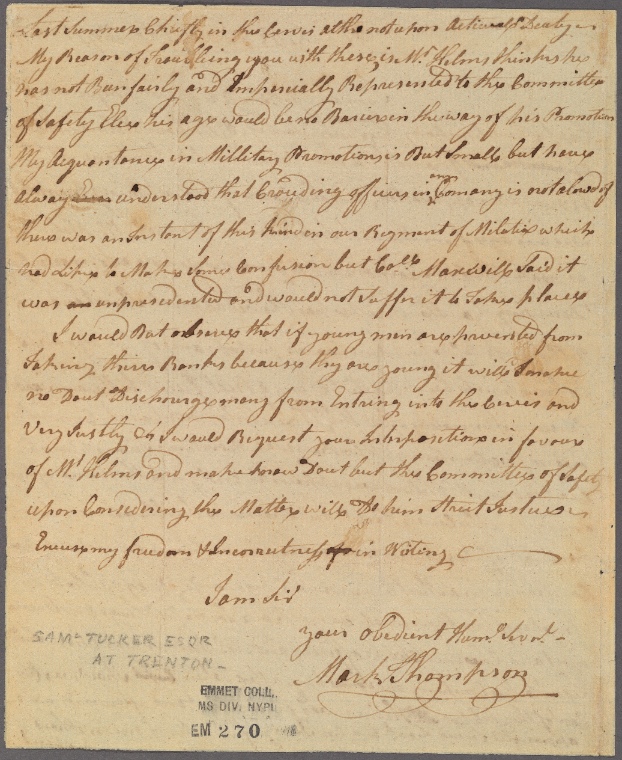 Last Summer Chiefly in the Cervis altho not upon Actiual Dealy
My Reason of Troubling you with these is Mr. Helms thinks he
has not Ban fairly and Imperially Represented to the Committe
of Safety Else his age would be no Barier in the way of his Promotion
My Acquantance in Millitary Promotions is But Small but have
alway understood that Crouding officers in any Comany is not alowd of
there was an Instent of this kind in our Regment of Militia which
had Like to Make Some Confusion but Coll. Maxwill Said it
was an unpresedented and would not Suffer it to Take place
I would But observe that if young men are prevented from
Taking there Ranks because they are young it will Io make
no Dout Discharge many from Entring into the Cervis and
very Justly & I would Request your Interposition in favour
of Mr. Helms and make know Dout but the Committee of Safety
upon Considering the Matter will Do him Strict Justice
Excuse my freedom & Incorrectness in Writing
I am Sir
your obedient Huml. Servt.
Mark Thompson
SAML TUCKER ESQR
AT TRENTON
EMMET COLL.
MS DIV. NYPL
EM 270